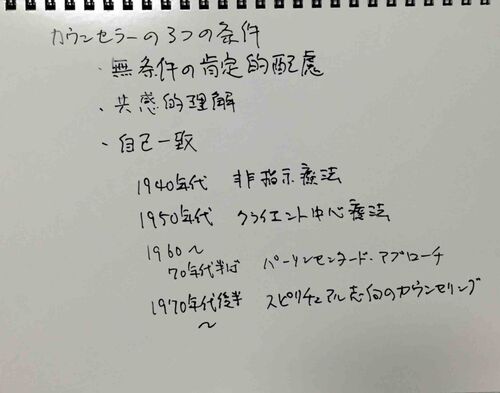 カウンセラーの3つの条件
・無条件の肯定的配慮
・共感的理解
・自己一致
1940年代 非指示療法
1950年代 クライエント中心療法
1960〜
70年代半ば パーソンセンタード・アプローチ
1970年代後半 スピリチュアル志向のカウンセリング
〜